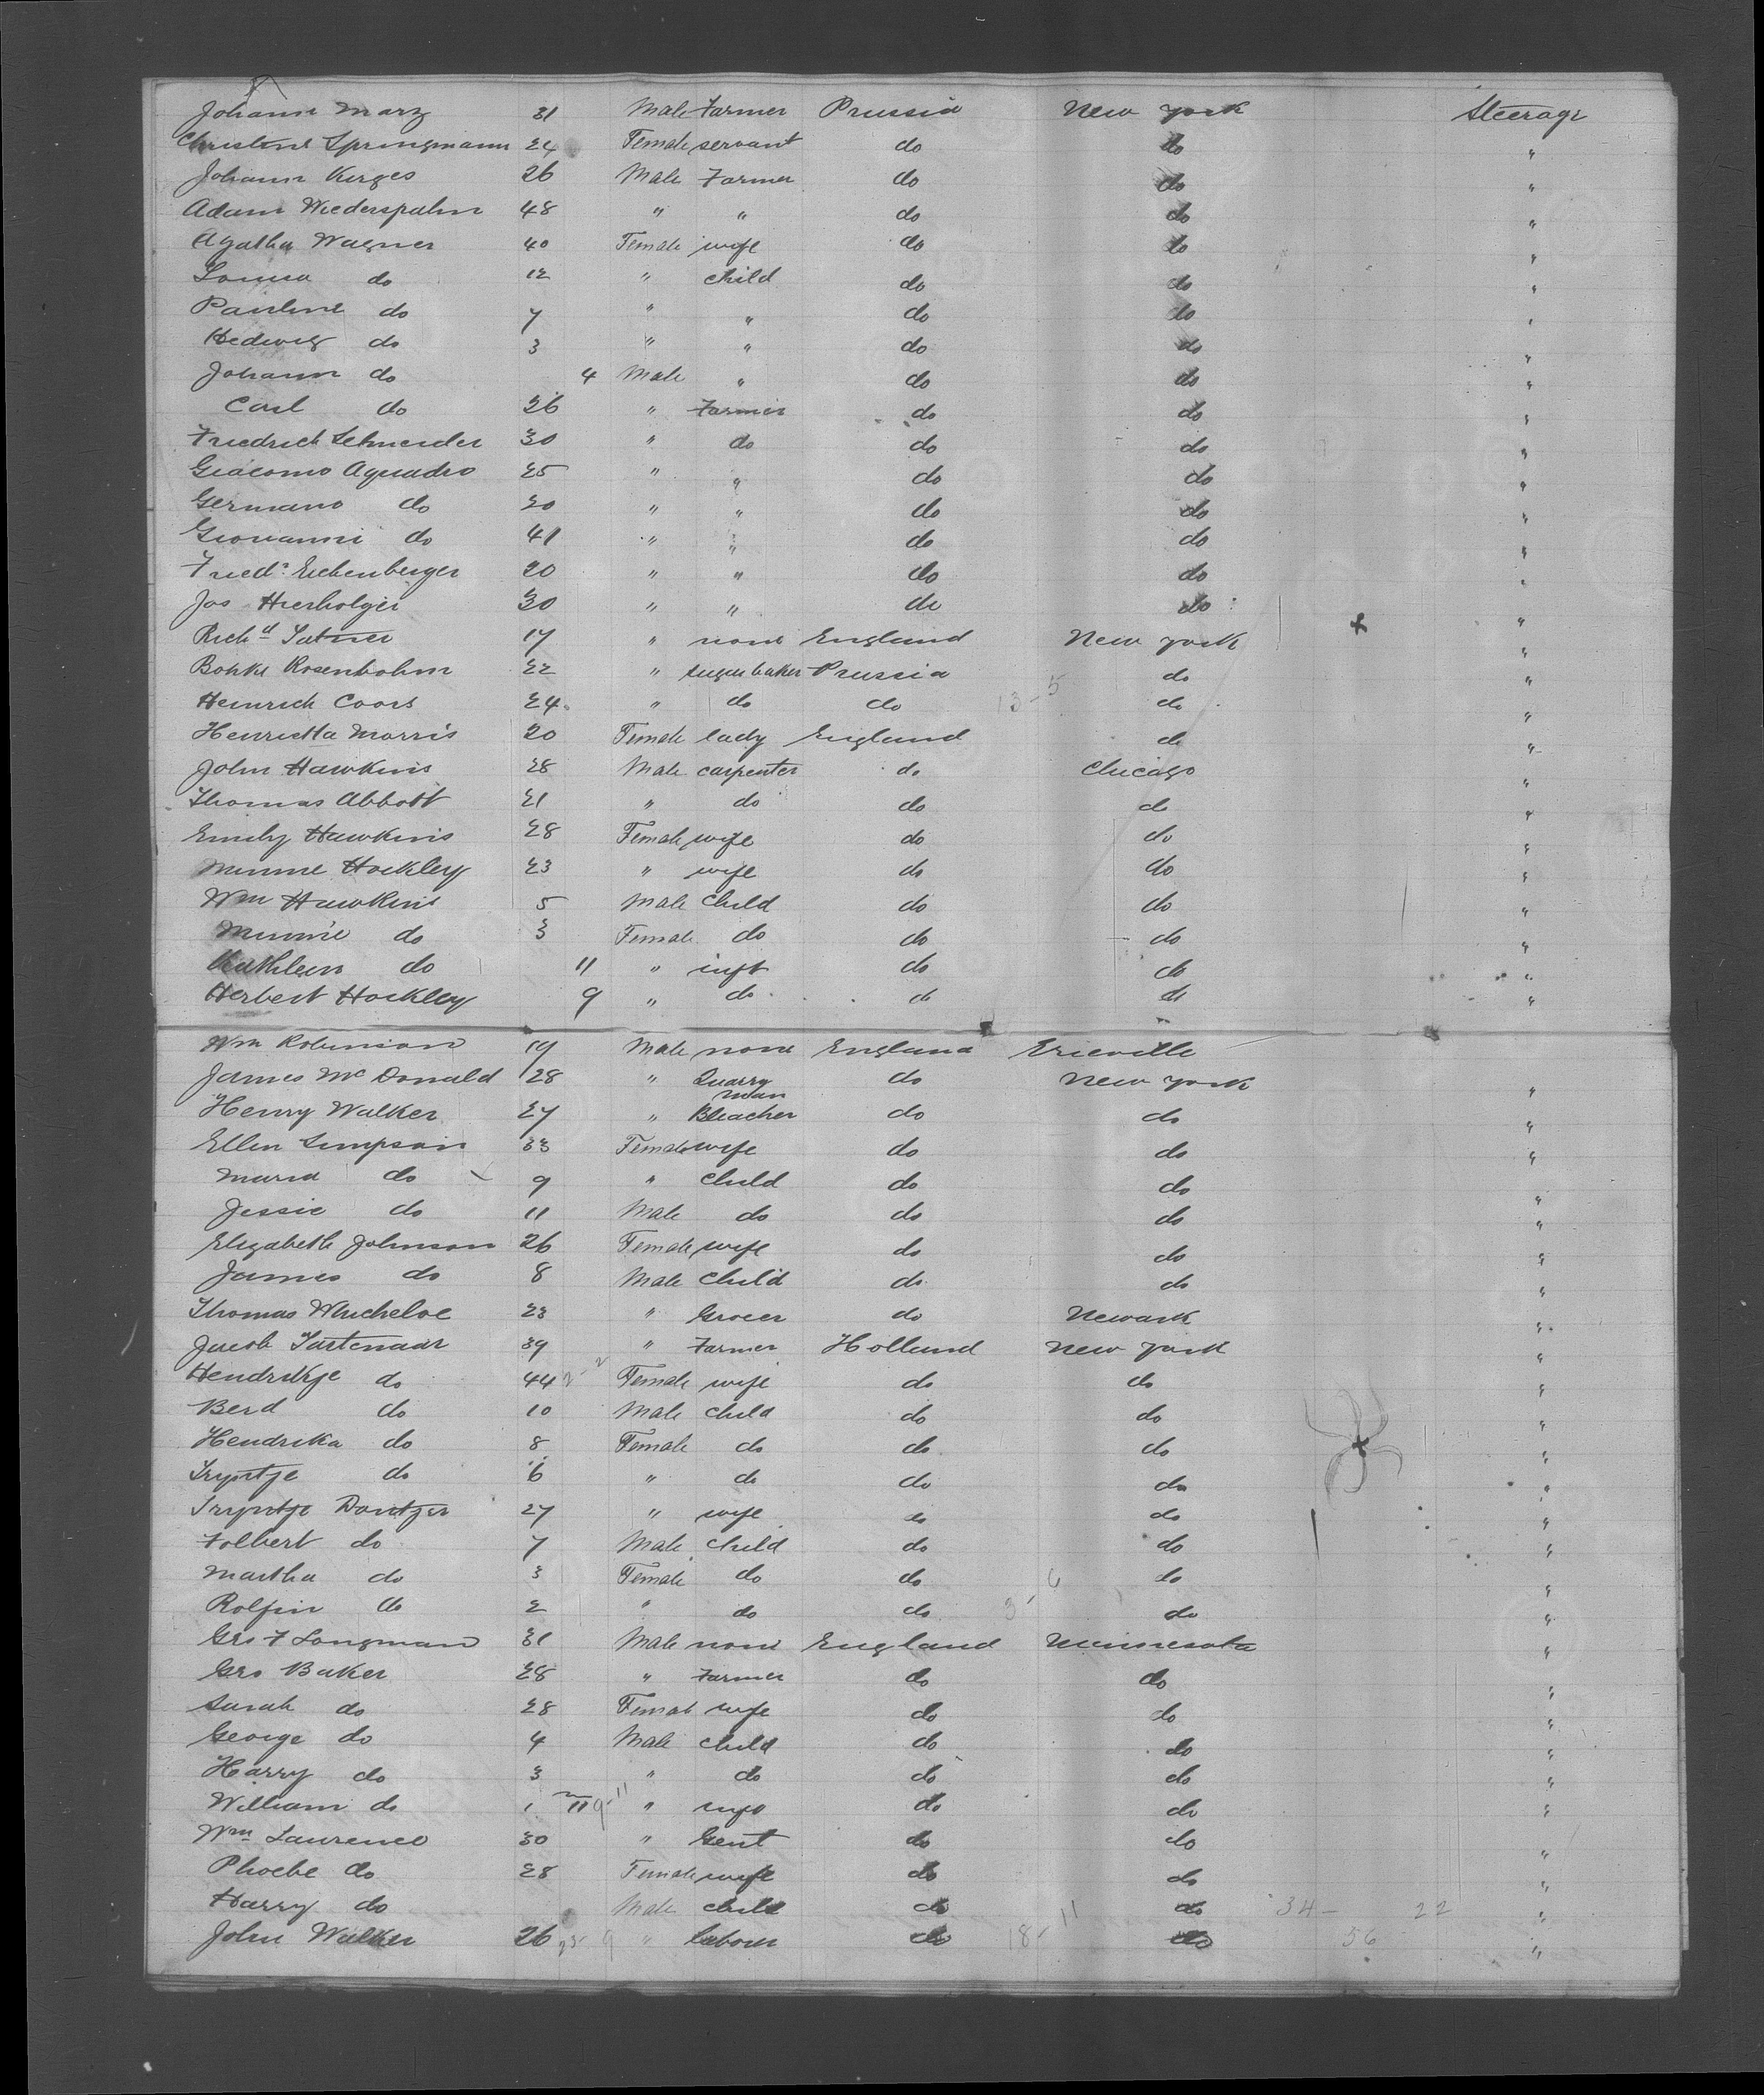 Johann Marz 31 Male Farmer Prussia New York Steerage
Christine Springmann 24 Female servant do do "
Johann Kerges 26 Male Farmer do do "
Adam Wiederspahn 48 " " do do "
Agatha Wagner 40 Female wife do do "
Louisa do 12 " child do do "
Pauline do 7 " " do do "
Hedwig do 3 " " do do "
Johann do 4 Male " do do "
Carl do 26 " Farmer do do "
Friedrich Schneider 30 " do do do "
Giacomo Aquadro 25 " " do do "
Germano do 20 " " do do "
Giovanni do 41 " " do do "
Friedr. Eichenberger 20 " " do do "
Jos Hierholzer 30 " " do do "
Richd 17 " none England New York "
Rosenbohm 22 " Prussia do "
Heinrich Coors 24 " do do 13-5 do "
Henrietta Morris 20 Female lady England do "
John Hawkins 28 Male carpenter do Chicago "
Thomas Abbott 21 " do do do "
Emily Hawkins 28 Female wife do do "
Minnie Hockley 23 " wife do do "
Wm Hawkins 5 Male Child do do "
Minnie do 3 Female do do do "
Kathleen do 11 " inft do do "
Herbert Hockley 9 " do do do "
Wm Robinson 19 Male none England Erieville
James McDonald 28 " Quarry man do New York "
Henry Walker 27 " Bleacher do do "
Ellen Simpson 33 Female wife do do "
Maria do 9 " child do do "
Jessie do 11 Male do do do "
Elizabeth Johnson 26 Female wife do do "
James do 8 Male Child do do "
Thomas Whicheloe 23 " Grocer do Newark "
Jacob 39 " Farmer Holland New York "
Hendrikje do 44 Female wife do do "
Berd do 10 Male child do do "
Hendrika do 8 Female do do do "
Tryntje do 6 " do do do "
Tryntje Dontzer 27 " wife do do "
Folbert do 7 Male child do do "
Martha do 3 Female do do do "
Rolfin do 2 " do do do "
Geo F Longman 31 Male none England Minnesota "
Geo Baker 28 " Farmer do do "
Sarah do 28 Female wife do do "
George do 4 Male child do do "
Harry do 3 " do do do "
William do 11 9-11 " do do "
Wm Laurence 30 " Gent do do "
Phoebe do 28 Female wife do do "
Harry do Male child do do 34- 22 "
John Walker 26 " labourer do 18-11 do 56 "